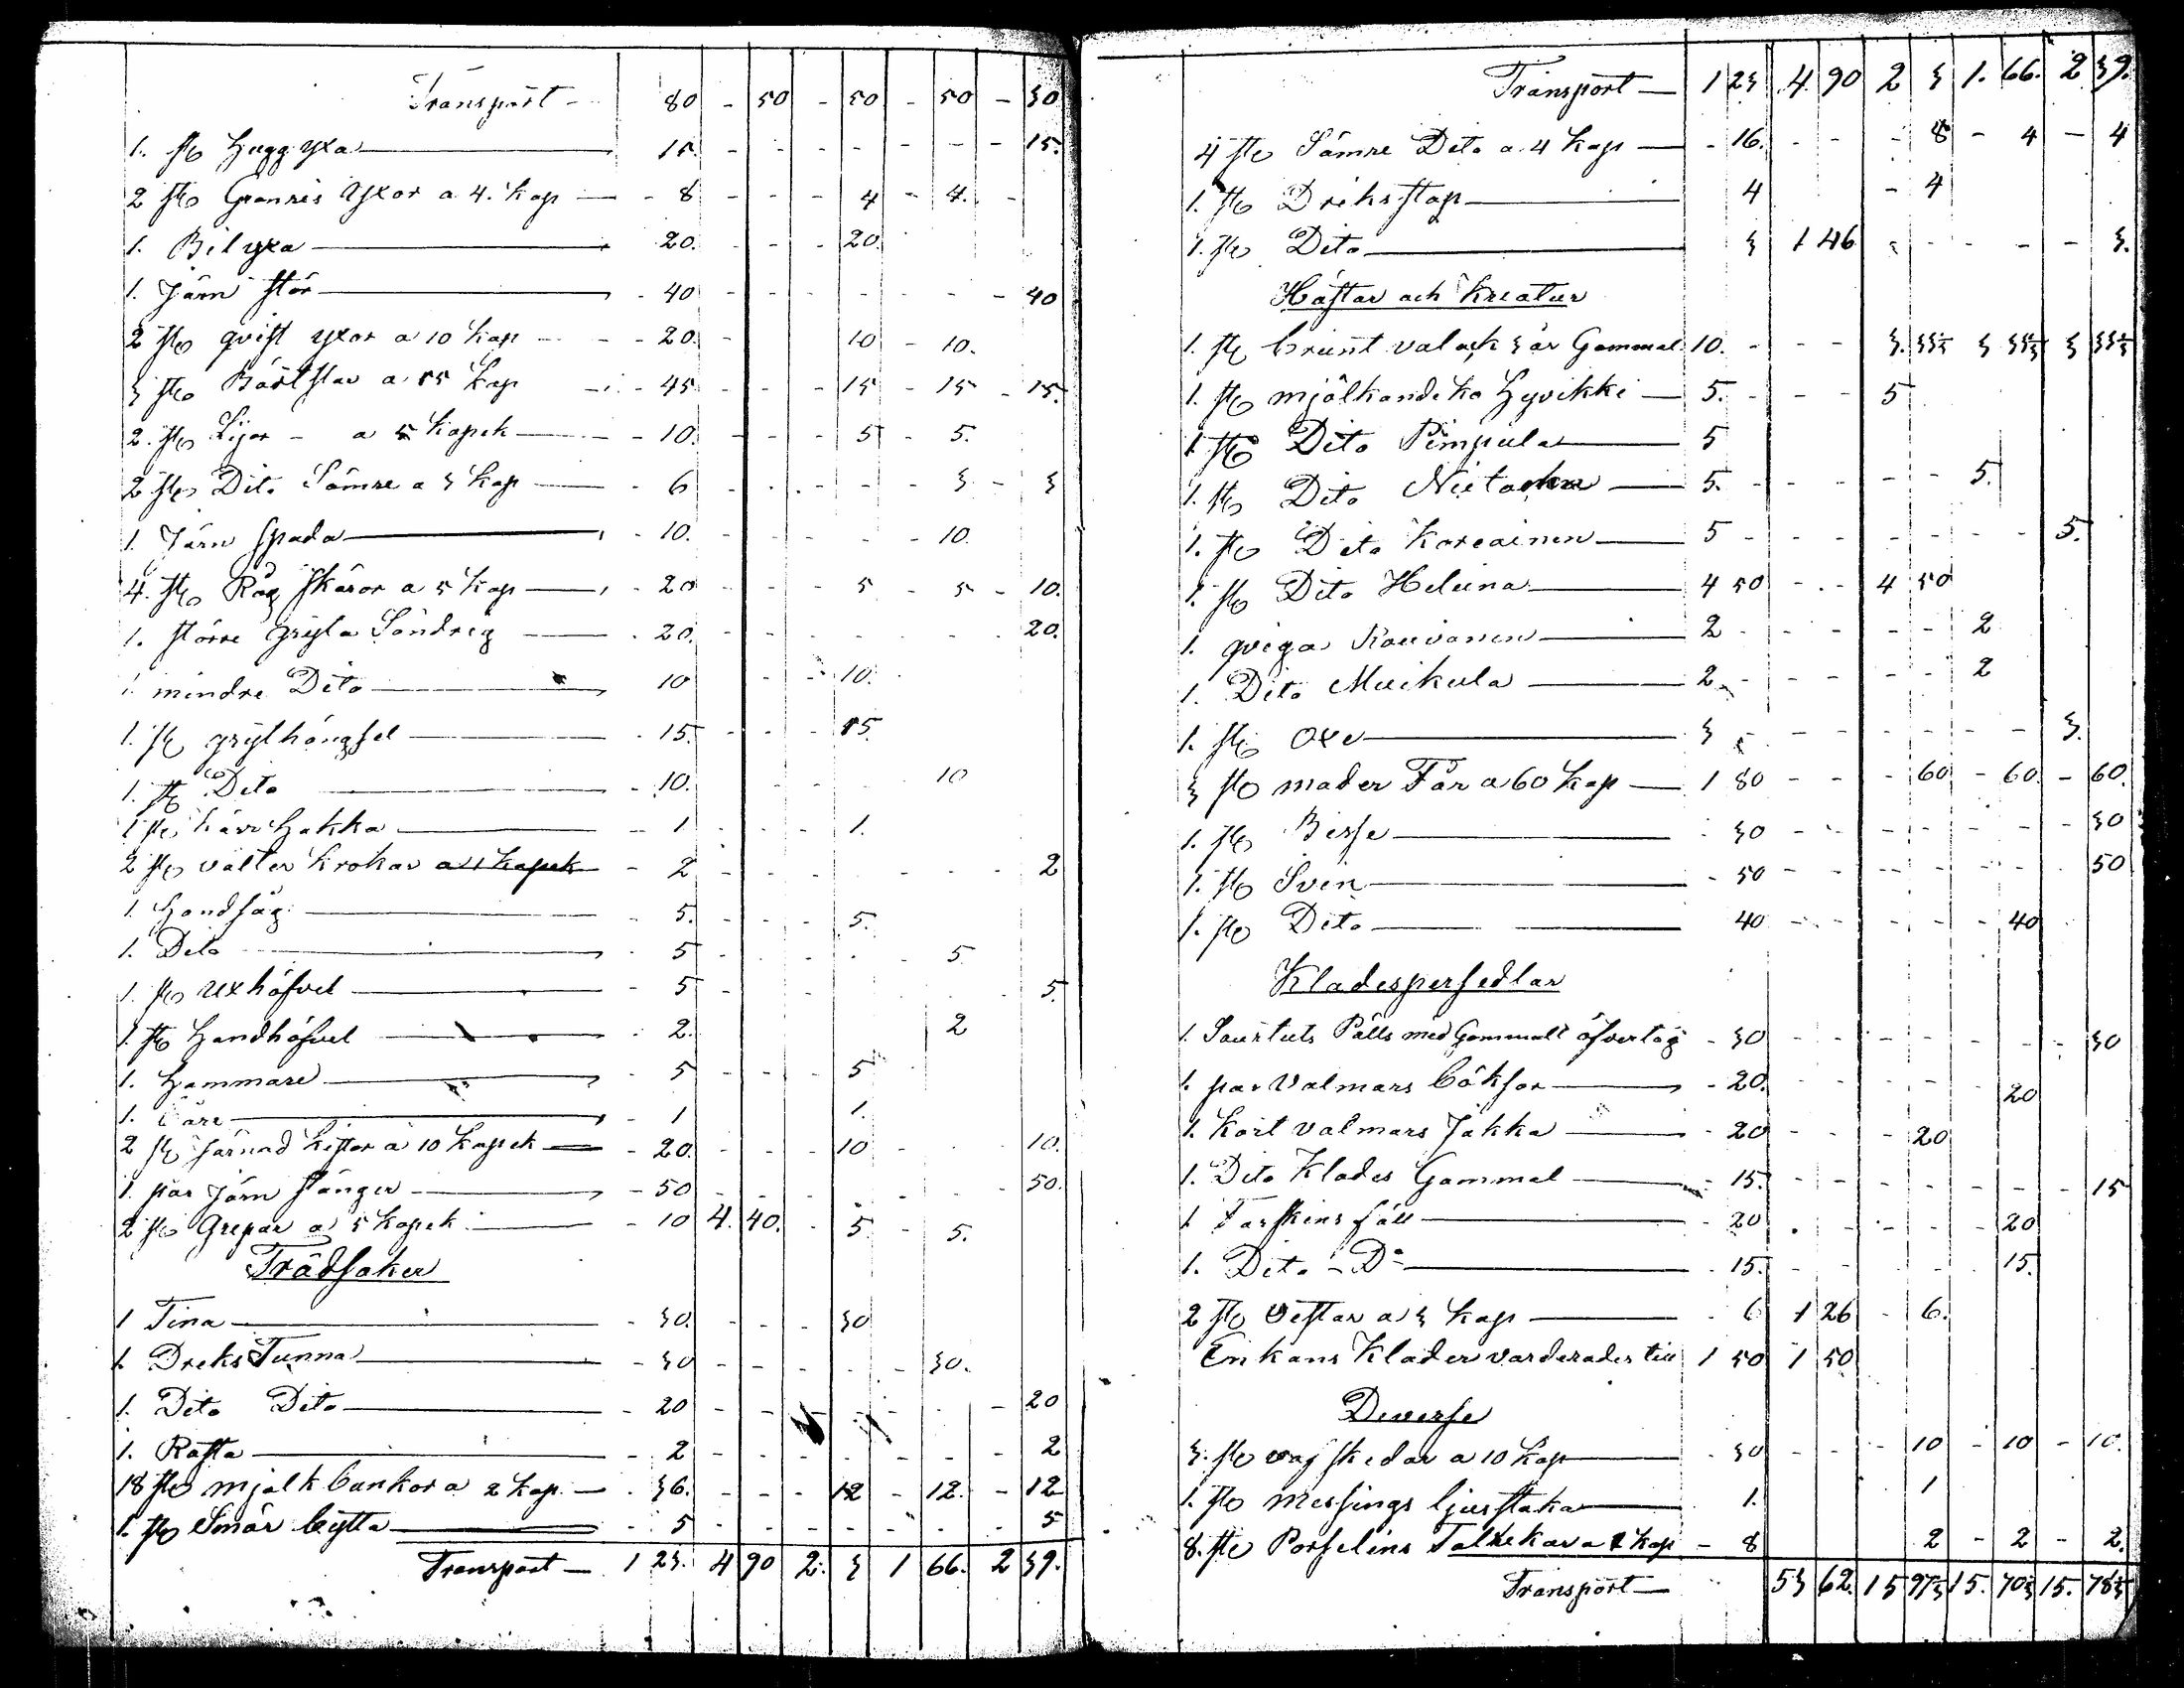 Transport - 80 - 50 - 50 - 50 - 30
1. st Hugg yxa 15. - - - - - - - 15.
2 st Granris Yxor a 4. kap - 8 - - - 4 - 4. -
1. Bil yxa - 20. - - - 20.
1. Järn stör - 40 - - - - - - - 40
2 st qvist yxor a 10 kap - 20. - 10 - 10.
3 st a 15 kap - 45 - - - 15 - 15 - 15.
2. st Lijor - a 5 kapek - 10. - - - 5 - 5.
2 st Dito Sämre a 3 kap - 6 - - - - - 3 - 3
1. Järn spada - 10. - - - - - 10.
4. st Råg skäror a 5 kap - 20 - - - 5 - 5 - 10.
1. större gryta Söndrig - 20. - - - - - - - 20.
1. mindre Dito 10 - - 10.
1. st grythängsel - 15. - - - 15.
1. st Dito - 10. - - - - - 10
1 st harr Hakka - 1 - - - 1.
2 st välter krokar a 1 kapek - 2 - - - - - - - 2
1. Handsåg - 5. - - - 5.
1. Dito - 5 - - - - - 5
1. st uxhöfvel - 5 - - - - - - - 5.
1. st Handhöfvel - 2. 2
1. Hammare - 5 - - - 5
1. - 1 1.
2 st kistor a 10 kapek - 20. - - - 10 - - - 10.
1. par järn stänger - 50 - - - - - - - 50.
2 st Grepar a 5 kapek - 10 4. 40. - 5 - 5.
Trädsaker
1 Tina - 30. - - - 30
1. Dreks Tunna - 30 - - - - - 30.
1. Dito Dito - 20 - - - - - - - 20
1. Rafta - 2 - - - - - - - 2
18 st mjolk bunkor a 2 kap. - 36. - - - 12 - 12. - 12
1. st Smör bytta - 5 - - - - - - - 5
Transport - 1 23. 4 90 2. 3 1 66. 2 39.
Transport - 1 23 4. 90 2 3 1. 66. 2 39.
4 st Sämre Dito a 4 kap - 16. - - - 8 - 4 - 4
1. st Driksstop 4 - 4
1. st Dito 3 1 46 - - - - - 3.
Hästar och kreatur
1. st brunt valack 3 år Gammal 10. - - - 3. 33⅓ 3 33⅓ 3 33⅓
1. st mjölkande ko Hyvikki 5. - - - 5
1 st Dito Pimpula 5
1. st Dito 5. - - - - - 5.
1. st Dito Koreainen 5 - - - - - - - 5.
1. st Dito Heluna 4 50 - - 4 50
1. qviga Rouvanen 2 - - - - - 2
1. Dito Muikula 2. - - - - - 2
1. st Oxe 3 - - - - - - - 3.
3 st moder Får a 60 kap 1 80 - - - 60 - 60. - 60.
1. st Besse - 30 - - - - - - - 30
1. st Svin - 50 - - - - - - - 50
1. st Dito 40 - - - - - 40
Kladespersedlar
1. Pälls med Gammalt öfvertög - 30 - - - - - - - 30
1. par Valmars böksor - 20. - - - - - 20
1. kort valmars Jakka - 20 - - - 20
1. Dito Klades Gammal - 15. - - - - - - - 15
1 Farskins fäll - 20 - - - - - 20
1. Dito - Do - 15. - - - - - 15.
2 st Vestar a 3 kap - 6 1 26 - 6.
Enkans Klader varderades till 1 50 1 50
Deverse
3. st a 10 kap - 30 - - - 10 - 10 - 10.
1. st messings ljusstaka 1. 1
8. st Porselins Talrekar a 1 kap - 8 2 - 2 - 2.
Transport - 53 62. 15 97⅓ 15. 70⅓ 15. 78⅓